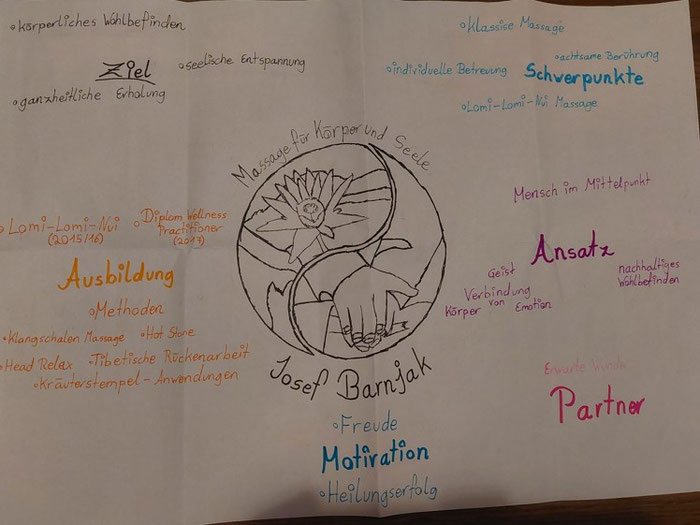 °körperliches Wohlbefinden
Ziel
°seelische Entspannung
°ganzheitliche Erholung
°Klassise Massage
°achtsame Berührung
°individuelle Betreuung
Schwerpunkte
°Lomi-Lomi-Nui Massage
Massage für Körper und Seele
Josef Barnjak
°Lomi-Lomi-Nui
(2015/16)
°Diplom Wellness
Practitioner
(2017)
Ausbildung
°Methoden
°Klangschalen Massage
°Hot Stone
°Head Relax
°Tibetische Rückenarbeit
°Kräuterstempel-Anwendungen
Mensch im Mittelpunkt
Ansatz
Geist
Verbindung
Körper von Emotion
nachhaltiges
Wohlbefinden
Erwarte
Partner
°Freude
Motivation
°Heilungserfolg